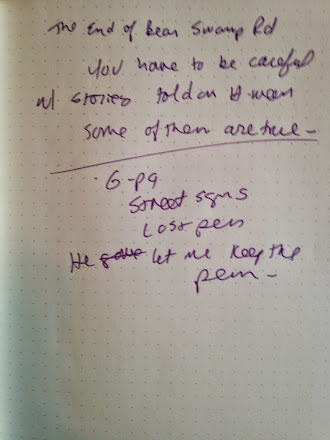 The End of Bear Swamp Rd
you have to be careful
w/ stories told on
some of them are true -
G-pa
Street signs
Lost pen
He gave let me keep the
pen -